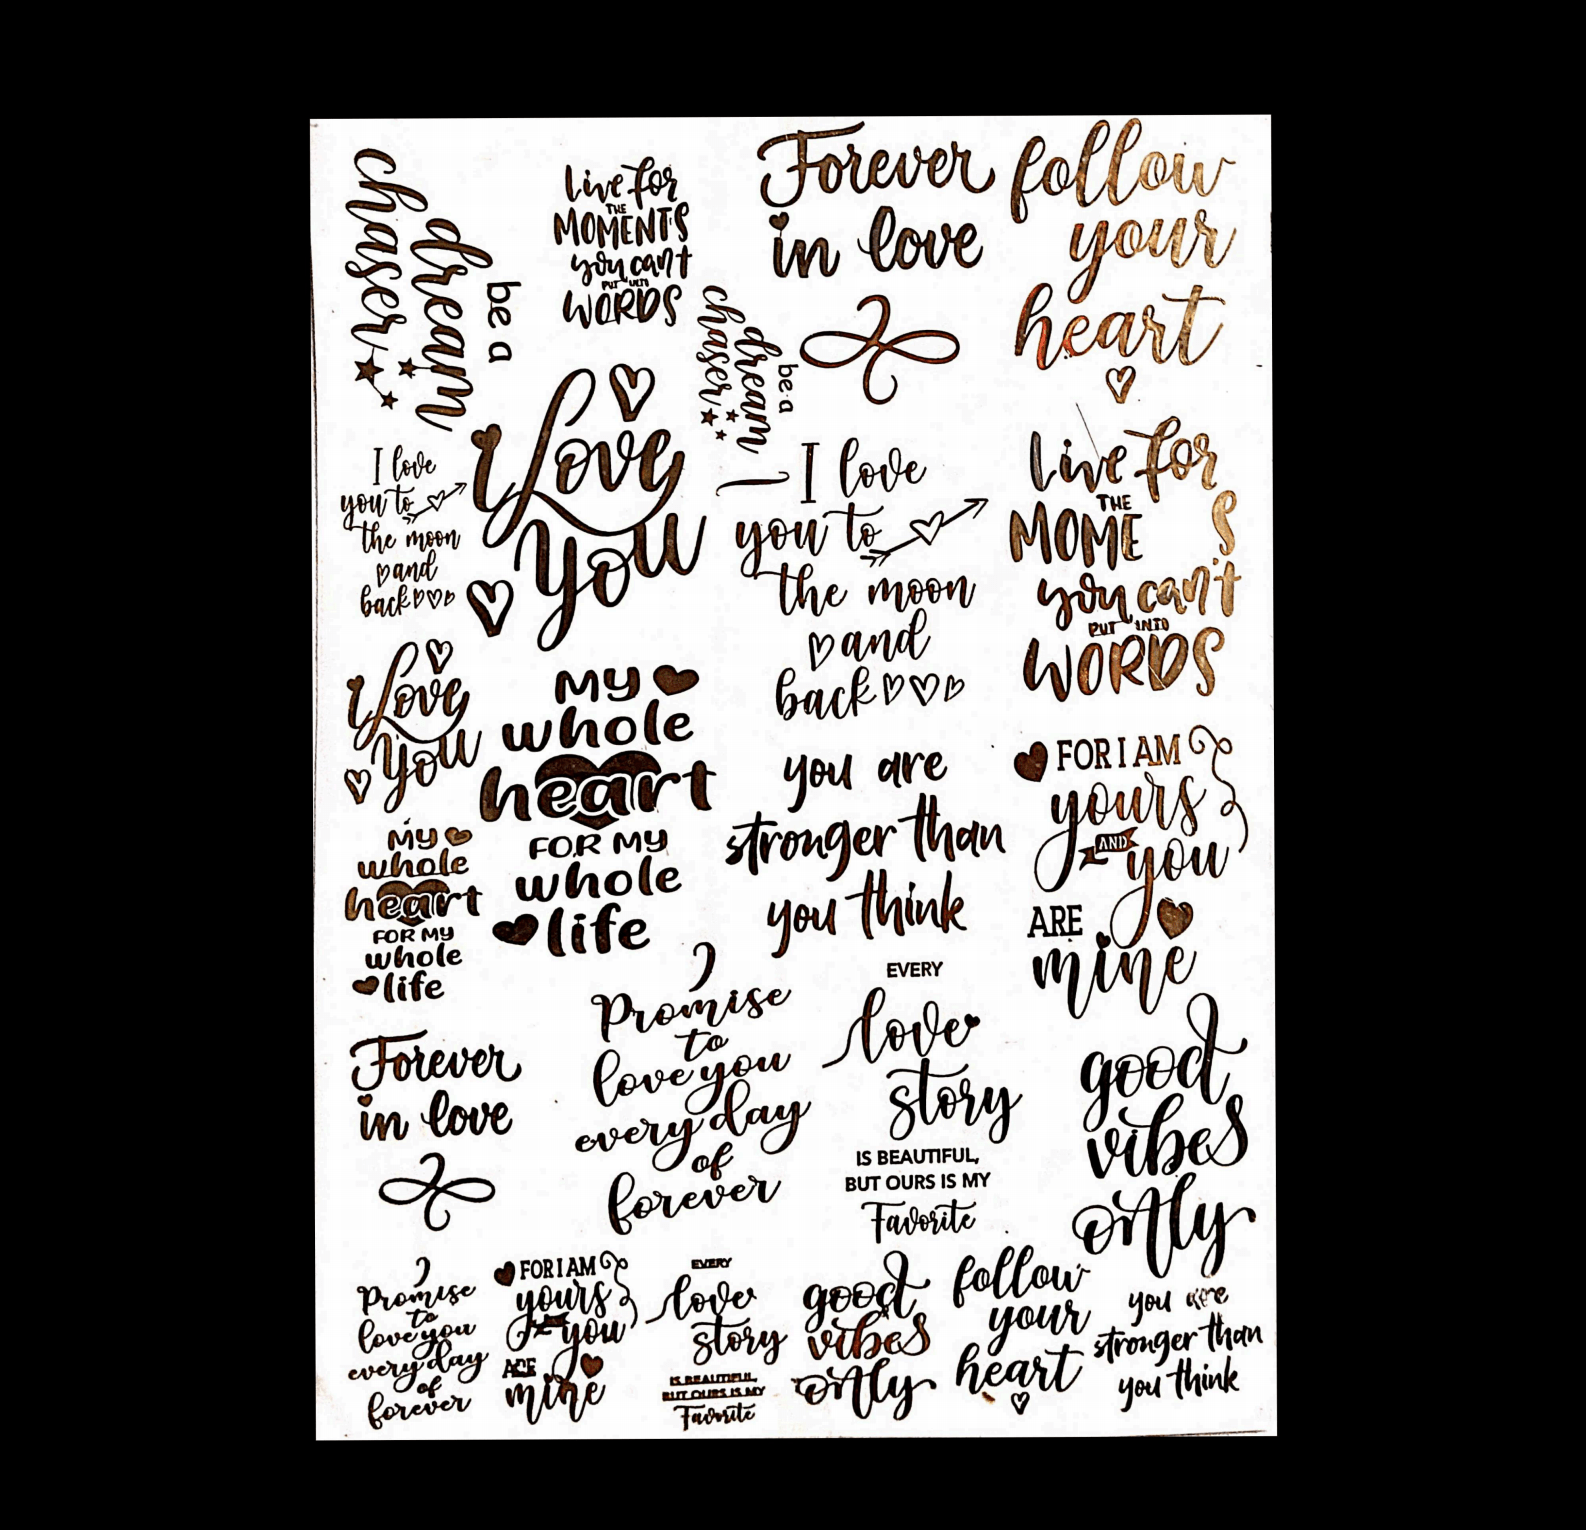 be a
dream
chaser
Live for
THE
MOMENTS
you can't
PUT INTO
WORDS
Forever
in love
follow
your
heart
be a
dream
chaser
I love
you to
the moon
and
back
i Love
You
I love
you to
the moon
and
back
Live for
THE
MOME S
you can't
PUT INTO
WORDS
i Love
You
My
whole
heart
FOR MY
whole
life
you are
stronger than
you think
FOR I AM
yours
AND
you
ARE
mine
My
whole
heart
FOR MY
whole
life
Forever
in love
I
Promise
to
love you
every day
of
forever
EVERY
love
story
IS BEAUTIFUL,
BUT OURS IS MY
Favorite
good
vibes
only
I
Promise
to
love you
every day
of
forever
FOR I AM
yours
you
ARE
mine
EVERY
love
story
IS BEAUTIFUL,
BUT OURS IS MY
Favorite
good
vibes
only
follow
your
heart
you are
stronger than
you think